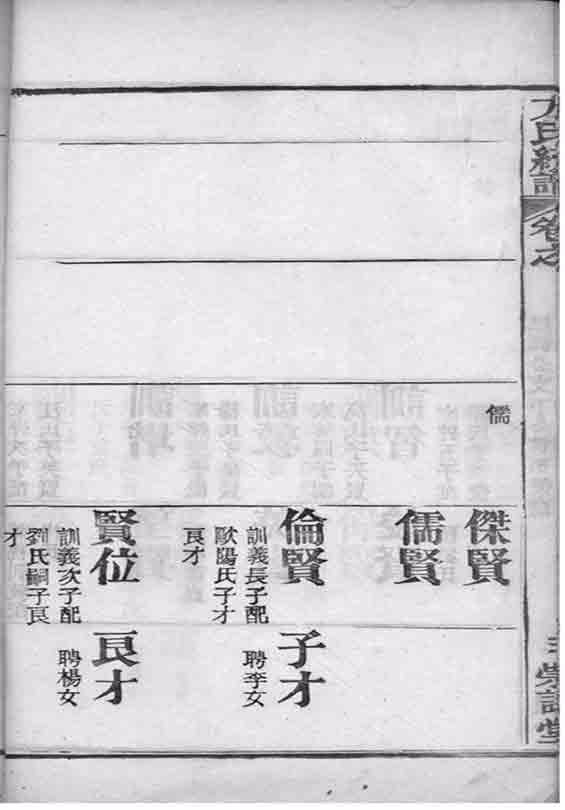 卷之
儒
傑賢
儒賢
倫賢
訓義長子配
歐陽氏子才
良才
賢位
訓義次子配
劉氏嗣子良
才
子才
聘李女
良才
聘楊女